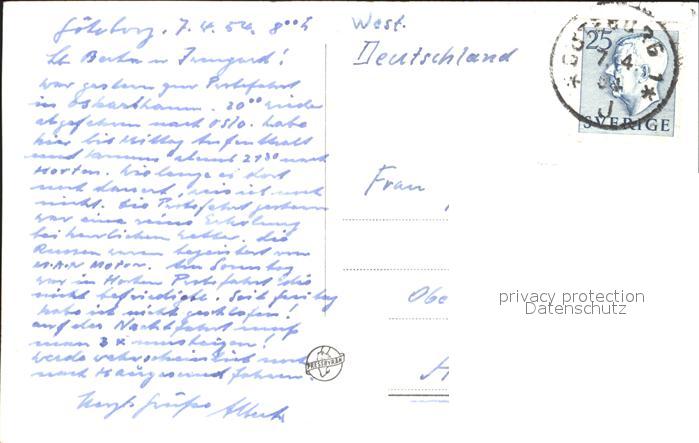 Göteborg, 7.4.54. 8ooh
Lb. Berta u. Irmgard!
war gestern zur Probefahrt
in Oskarshamn. 20oo wieder
abgefahren nach Oslo. habe
hier bis Mittag Aufenthalt
und komme abend 2130 nach
Horten. Wie lange es dort
noch dauert, weis ich noch
nicht. Die Probefahrt gestern
war eine reine Erholung
bei herrlichem Wetter. Die
Russen waren begeistert vom
M.A.N Motor. Am Sonntag
war in Horten Probefahrt die
nicht befriedigte. Seit freitag
habe ich nicht geschlafen!
auf der Nachtfahrt muß
man 3x umsteigen!
werde wahrscheinlich noch
nach Haugesund fahren.
Herzl. Grüße Albert
West.
Deutschland
Frau
Obe
PRESSBYRÅN
GÖTEBORG 1
7.4.
54
J
25
SVERIGE
privacy protection
Datenschutz